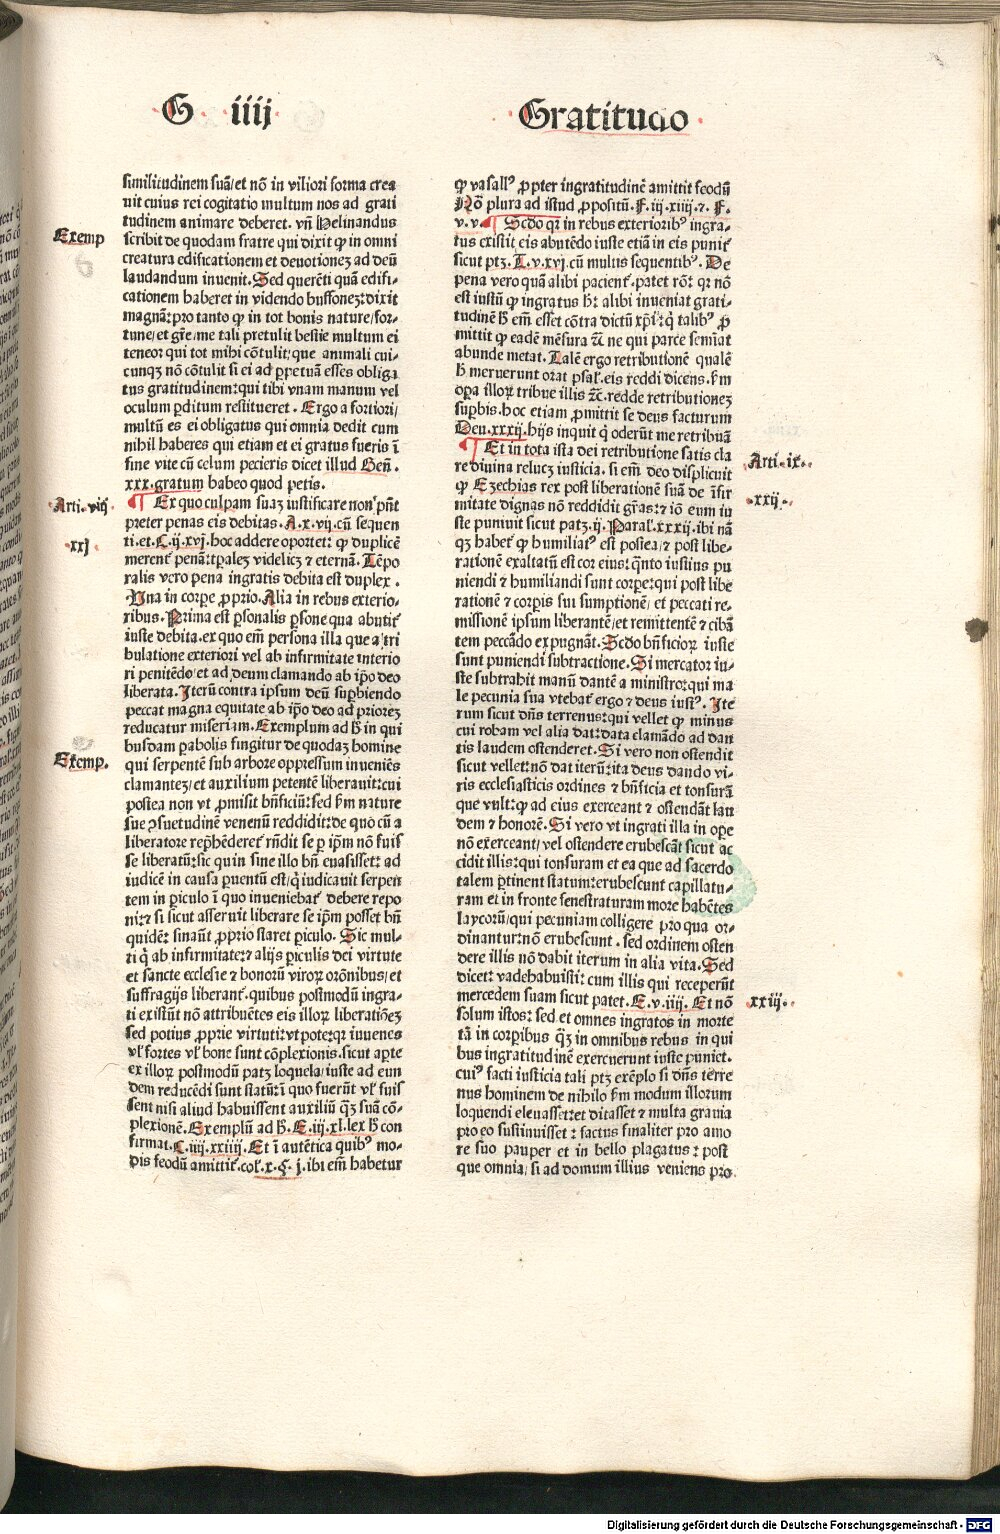 G iiij
Gratitudo
similitudinem suā/et nō in viliori forma crea
uit cuius rei cogitatio multum nos ad grati
tudinem animare deberet. vñ Helinandus
Exemp
scribit de quodam fratre qui dixit ꝙ in omni
creatura edificationem et deuotionez ad deū
laudandum inuenit. Sed querēti quā edifi-
cationem haberet in videndo buffonez: dixit
magnā: pro tanto ꝙ in tot bonis nature/for-
tune/et grē/me tali pretulit bestie multum ei
teneor qui tot mihi cōtulit/que animali cui-
cunqꝫ nō cōtulit si ei ad ꝑpetuā esses obliga
tus gratitudinem: qui tibi vnam manum vel
oculum ꝑditum restitueret. Ergo a fortiori/
multū es ei obligatus qui omnia dedit cum
nihil haberes qui etiam et ei gratus fueris ī
fine vite cū celum pecieris dicet illud Geñ.
xxx.gratum habeo quod petis.
Arti.viij.
¶ Ex quo culpam suaꝫ iustificare non pn̄t
preter penas eis debitas. A.x.vij.cū sequen
xxj
ti.et.C.ij.xvj.hoc addere oportet: ꝙ duplicē
merent᷑ penā: tꝑaleꝫ videlicꝫ ⁊ eternā. Tēpo
ralis vero pena ingratis debita est duplex.
Vna in corpe ꝓprio. Alia in rebus exterio-
ribus. Prima est ꝑsonalis ꝑsone qua abutit᷑
iuste debita. ex quo em̄ persona illa que a tri
bulatione exteriori vel ab infirmitate interio
ri penitēdo/et ad deum clamando ab ip̄o deo
liberata. Iterū contra ipsum deū suꝑbiendo
peccat magna equitate ab ip̄o deo ad priorez
reducatur miseriam. Exemplum ad h̄ in qui
busdam ꝑabolis fingitur de quodaꝫ homine
Exemp.
qui serpentē sub arbore oppressum inueniēs
clamantez/et auxilium petentē liberauit: cui
postea non vt ꝓmisit bn̄ficiū: sed ẜm nature
sue ꝯsuetudinē venenū reddidit: de quo cū a
liberatore rep̄hēderet᷑ rn̄dit se ꝑ ip̄m nō fuis
se liberatū: sic qui in fine illo bn̄ euasisset: ad
iudicē in causa ꝑuentū est/q̄ iudicauit serpen
tem in ꝑiculo ī quo inuenieba᷑t debere repo
ni: ⁊ si sicut asseruit liberare se ip̄m posset bn̄
quidē: sinaūt ꝓprio staret ꝑiculo. Sic mul-
ti q̄ ab infirmitate: ⁊ alijs ꝑiculis dei virtute
et sancte ecclesie ⁊ bonorū viroꝝ orōnibus/et
suffragijs liberant᷑. quibus postmodū ingra-
ti existūt nō attribuētes eis illoꝝ liberatiōeꝫ
sed potius ꝓprie virtuti: vt pote: qꝛ iuuenes
vl᷑ fortes vl᷑ bone sunt cōplexionis. sicut aꝑte
ex illoꝝ postmodū patꝫ loquela/iuste ad eun
dem reducēdi sunt statū: ī quo fuerūt vl᷑ fuis
sent nisi aliud habuissent auxiliū qꝫ suā cō-
plexionē. Exemplū ad h̄. E.iij.xl.lex h̄ con
firmat. C.iiij.xxiiij. Et ī autētica quibꝰ mo-
dis feodū amittit᷑. col᷑.x.ꝗ. j.ibi em̄ habetur
ꝙ vasallꝰ ꝓpter ingratitudinē amittit feodū
Nō plura ad istud ꝓpositū. F.iij.xiiij.⁊. F.
v.v. ¶ Scd̄o qꝛ in rebus exterioribꝰ ingra-
tus existit eis abutēdo iuste etiā in eis punit᷑
sicut ptꝫ. T.v.xvj.cū multis sequentibꝰ. De
pena vero quā alibi pacient᷑. patet rō: qꝛ nō
est iustū ꝙ ingratus h̄: alibi inueniat grati-
tudinē h̄ em̄ esset cōtra dictū xp̄i: q̄ talibꝰ ꝓ
mittit ꝙ eadē mēsura ⁊c̄ ne qui parce semīat
abunde metat. Talē ergo retributionē qualē
h̄ meruerunt orat psal᷑.eis reddi dicens. ẜm
oꝑa illoꝝ tribue illis ⁊c̄. redde retributioneꝫ
suꝑbis. hoc etiam ꝓmittit se deus facturum
Deu.xxxij. hijs inquit q̄ oderūt me retribuā
¶ Et in tota ista dei retributione satis cla
Arti.ix.
re diuina relucꝫ iusticia. si em̄ deo displicuit
ꝙ Ezechias rex post liberationē suā de īfir
xxij.
mitate dignas nō reddidit grās: ⁊ iō eum iu
ste puniuit sicut patꝫ.ij. Paral᷑.xxxij.ibi nā
qꝫ habet᷑ ꝙ humiliatꝰ est postea/⁊ post libe-
rationē exaltatū est cor eius: q̄nto iustius pu
niendi ⁊ humiliandi sunt corpe: qui post libe
rationē ⁊ corꝑis sui sumptionē/ et peccati re-
missionē ipsum liberantē/et remittentē ⁊ cibā
tem peccādo expugnāt. Scd̄o bn̄ficioꝝ iuste
sunt puniendi subtractione. Si mercator iu-
ste subtrahit manū dantē a ministro: qui ma
le pecunia sua vtebat᷑ ergo ⁊ deus iustꝰ. Ite
rum sicut dn̄s terrenus: qui vellet ꝙ minus
cui robam vel alia dat: data clamādo ad dan
tis laudem ostenderet. Si vero non ostendit
sicut vellet: nō dat iterū: ita deus dando vi-
ris ecclesiasticis ordines ⁊ bn̄ficia et tonsurā
que vult: ꝙ ad eius exerceant ⁊ ostendāt lau
dem ⁊ honorē. Si vero vt ingrati illa in oꝑe
nō exerceant/ vel ostendere erubescāt sicut ac
cidit illis: qui tonsuram et ea que ad sacerdo
talem ꝑtinent statum: erubescunt capillatu-
ram et in fronte fenestraturam more habētes
laycorū/ qui pecuniam colligere pro qua or-
dinantur: nō erubescunt. sed ordinem osten
dere illis nō dabit iterum in alia vita. Sed
dicet: vade habuisti: cum illis qui receperūt
mercedem suam sicut patet. E.v.iiij. Et nō
xxiij.
solum istos: sed et omnes ingratos in morte
tā in corꝑibus qꝫ in omnibus rebus in qui
bus ingratitudinē exercuerunt iuste puniet.
cuiꝰ facti iusticia tali ptꝫ exēplo si dn̄s terre
nus hominem de nihilo ẜm modum illorum
loquendi eleuasset: et ditasset ⁊ multa grauia
pro eo sustinuisset: factus finaliter pro amo
re suo pauper et in bello plagatus: post
que omnia/ si ad domum illius veniens pro
Digitalisierung gefördert durch die Deutsche Forschungsgemeinschaft - DFG